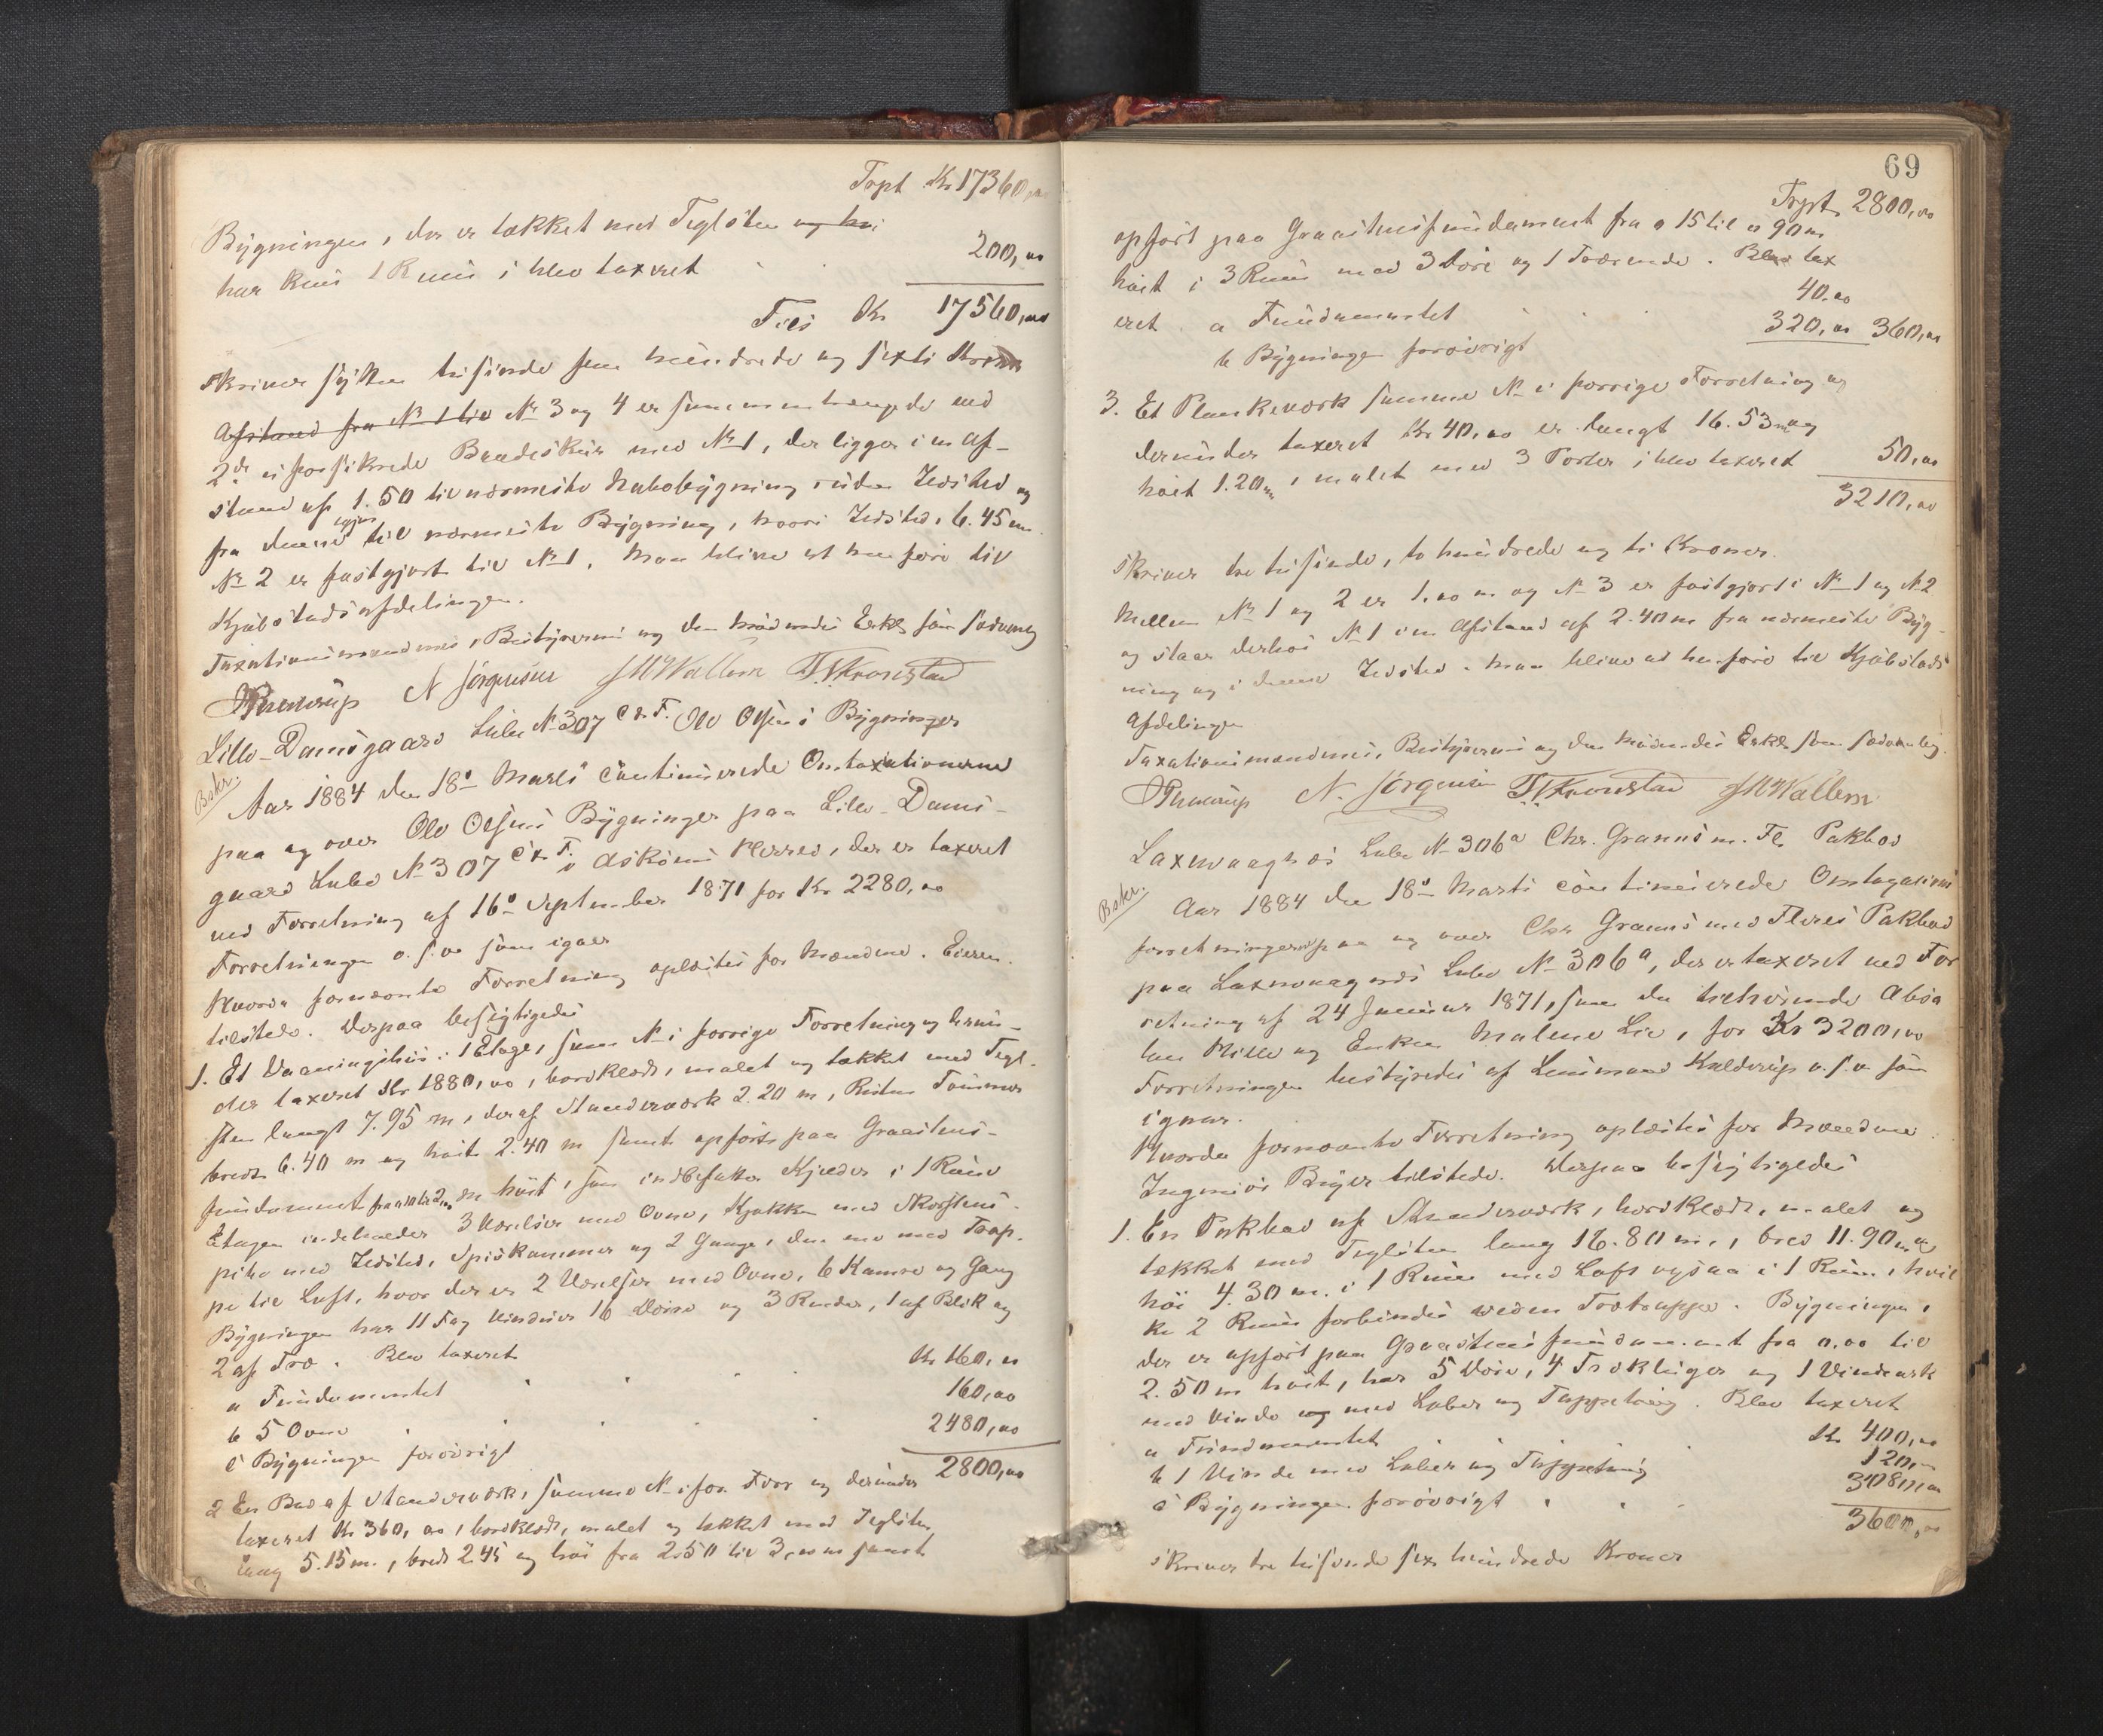 Trpt Kr 17360,00
Bygningen, der er tækket med Teglsten og har
har kun 1 Rum; blev taxeret 200,00
Tils Kr 17560,00
skriver sytten tusinde fem hundrede og sexti Kroner
Afstand fra No 1 til No 3 og 4 er sammenhængende med
2de uforsikrede Brædeskur med No 1, der ligger i en Af-
stand af 1.50 til nærmeste Nabobygning uden Ildsted og
fra denne igjen til nærmeste Bygning, hvori Ildsted, 6.45 m.
No 2 er fastgjort til No 1. Man blive at henføre til
Kjøbstadsafdelingen.
Taxationsmændenes, Bestyrerens og den mødendes Erkl som sædvanlig
N Jørgensen JMWallem T.Kronstad
Lille-Damsgaard Lube No 307 C & F. Ole Olsens Bygninger
Bskr.
Aar 1884 den 18de Marts continuerede Omtaxationerne
paa og over Ole Olsens Bygninger paa Lille-Dams-
gaard Lube No 307 C & F. i Askøens Herred, der er taxeret
ved Forretning af 16de September 1871 for Kr 2280,00
Forretningen o.s.v. som igaar
Hvorda fornævnte Forretning oplæstes for Mændene. Eieren
tilstede. Derpaa besigtigedes
1. Et Vaaningshus i 1 Etage, samme No i forrige Forretning og derun-
der taxeret Kr 1880,00, bordklædt, malet og tækket med Tegl-
sten langt 7.95 m, deraf Standerværk 2.20 m, Resten Tømmer
bredt 6.40 m og høit 2.40 m samt opført paa Graastens-
fundament fra til 2 m høit, som indbefatter Kjelder i 1 Rum
Etagen indeholder 3 Værelser med Ovne, Kjøkken med Skorstens-
pibe med Ildsted, Spiskammer og 2 Gange, den ene med Trap-
pe til Loft, hvor der er 2 Værelser med Ovne, 6 Kamre og Gang
Bygningen har 11 Fag Vinduer 16 Døre og 3 Render, 1 af Blik og
2 af Træ. Blev taxeret
a Fundamentet Kr 160,00
b 5 Ovne 160,00
c Bygningen forøvrigt 2480,00
2800,00
2 En Bod af Standerværk, samme No i for. Forr og derunder
taxeret Kr 360,00, bordklædt, malet og tækket med Teglsten
lang 5.15 m., bred 2.45 og høi fra 2.50 til 3,00 m samt
69
Trpt 2800,00
opført paa Graastensfundament fra 0 15 til 0 90 m
høit i 3 Rum med 3 Døre og 1 Trærende. Blev tax
eret a Fundamentet 40.00
b Bygningen forøvrigt 320,00 360,00
3. Et Plankeværk samme No i forrige Forretning og
derunder taxeret Kr 40,00 er langt 16.53 m og
høit 1.20 m, malet med 3 Porter; blev taxeret 50,00
3210,00
skriver tre tusinde, to hundrede og ti Kroner.
Mellem No 1 og 2 er 1.00 m. og No 3 er fastgjort i No 1 og No 2
og staar derhos No 1 i en Afstand af 2.40 m fra nærmeste Byg-
ning og i denne Ildsted. Man blive at henføre til Kjøbstads
Afdelingen
Taxationsmændenes, Bestyrerens og den mødendes Erkl som sædvanlig.
N. Jørgensen T.Kronstad JMWallem
Laxevaagnæs Lube No 306a Chr. Grannes m. Fl. Pakbod
Bskr.
Aar 1884 den 18de Marts continuerede Omtaxations
forretningerne paa og over Chr Grannes med Fleres Pakbod
paa Laxevaagnæs Lube No 306a, der er taxeret ved For
retning af 24 Januar 1871, som da tilhørende
og Enken Malene Lie, for Kr 3200,00
Forretningen bestyredes af Lensmand o.s.v. som
igaar.
Hvorda fornævnte Forretning oplæstes for Mændene.
Ingeniør tilstede. Derpaa besigtigedes
1. En Pakbod af Standerværk, bordklædt, malet og
tækket med Teglsten lang 16.80 m., bred 11.90 m og
høi 4.30 m. i 1 Rum med Loft ogsaa i 1 Rum, hvil
ke 2 Rum forbindes ved en Trætrappe. Bygningen,
der er opført paa Graastensfundament fra 0.00 til
2.50 m høit, har 5 Døre, 4 Træklinger og 1 Vindeark
med Vinde og med Løber og Tappetaug. Blev taxeret
a Fundamentet Kr 400,00
b 1 Vinde med Løber og Tappetaug 120,00
c Bygningen forøvrigt 3080,00
3600,00
skriver tre tusende sex hundrede Kroner